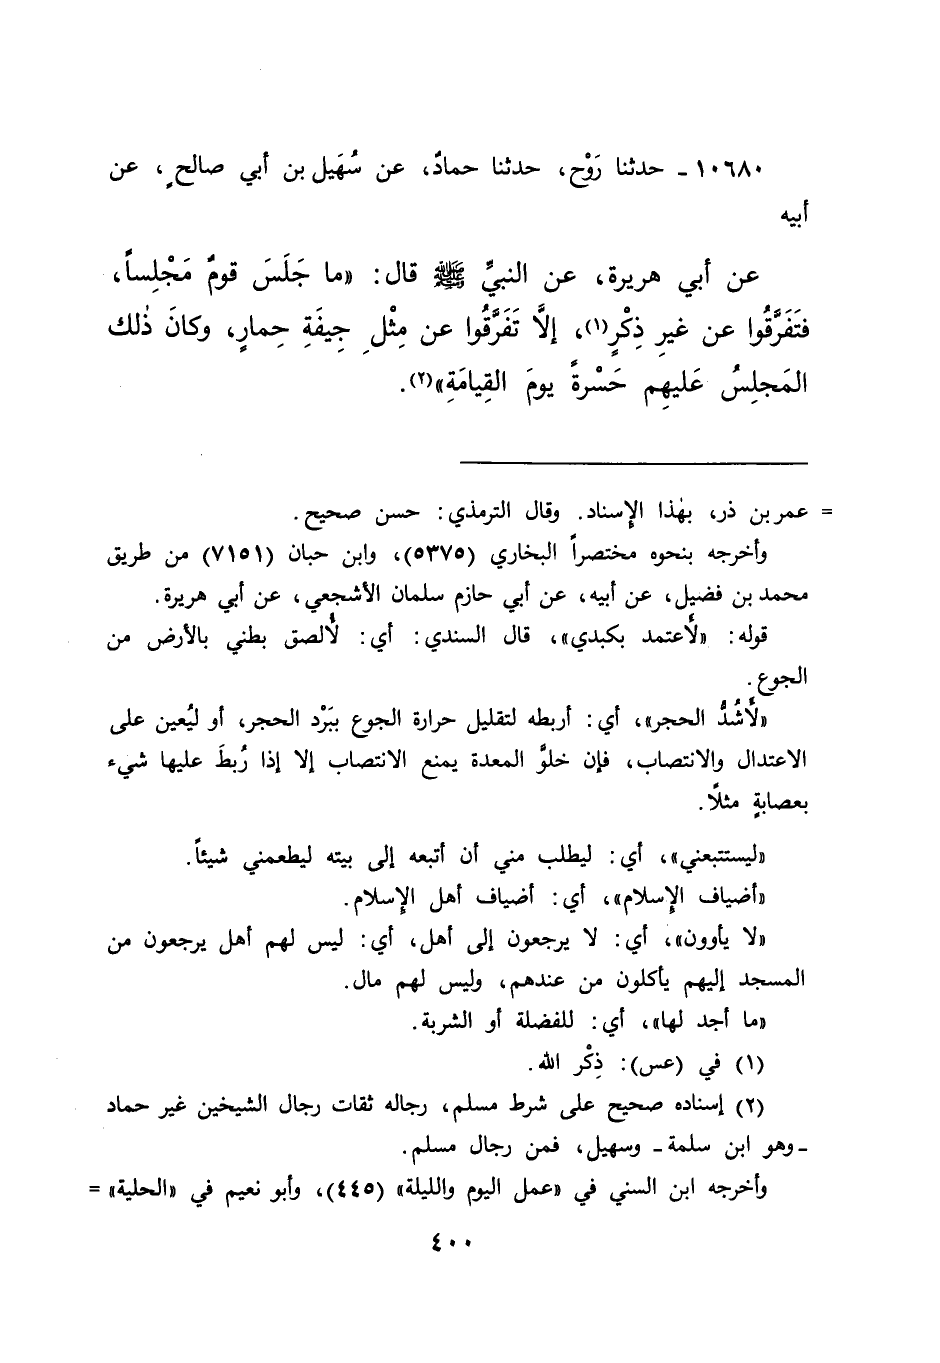 ١٠٦٨٠ - حدثنا رَوْح، حدثنا حمادٌ، عن سُهَيل بن أبي صالحٍ، عن
أبيه
عن أبي هريرة، عن النبيِّ ﷺ قال: «ما جَلَسَ قومٌ مَجْلِساً،
فتَفَرَّقُوا عن غيرِ ذِكْرٍ(١)، إلَّا تَفَرَّقُوا عن مِثْلِ جِيفَةِ حِمارٍ، وكانَ ذٰلك
المَجلِسُ عَليهِم حَسْرةً يومَ القِيامَةِ»(٢).
= عمر بن ذر، بهٰذا الإسناد. وقال الترمذي: حسن صحيح.
وأخرجه بنحوه مختصراً البخاري (٥٣٧٥)، وابن حبان (٧١٥١) من طريق
محمد بن فضيل، عن أبيه، عن أبي حازم سلمان الأشجعي، عن أبي هريرة.
قوله: «لأعتمد بكبدي»، قال السندي: أي: لأُلصق بطني بالأرض من
الجوع.
«لأَشُدُّ الحجر»، أي: أربطه لتقليل حرارة الجوع ببَرْد الحجر، أو ليُعين على
الاعتدال والانتصاب، فإن خلوَّ المعدة يمنع الانتصاب إلا إذا رُبطَ عليها شيء
بعصابةٍ مثلًا.
«ليستتبعني»، أي: ليطلب مني أن أتبعه إلى بيته ليطعمني شيئاً.
«أضياف الإسلام»، أي: أضياف أهل الإسلام.
«لا يأوون»، أي: لا يرجعون إلى أهل، أي: ليس لهم أهل يرجعون من
المسجد إليهم يأكلون من عندهم، وليس لهم مال.
«ما أجد لها»، أي: للفضلة أو الشربة.
(١) في (عس): ذِكْر الله.
(٢) إسناده صحيح على شرط مسلم، رجاله ثقات رجال الشيخين غير حماد
- وهو ابن سلمة - وسهيل، فمن رجال مسلم.
وأخرجه ابن السني في «عمل اليوم والليلة» (٤٤٥)، وأبو نعيم في «الحلية» =
٤٠٠